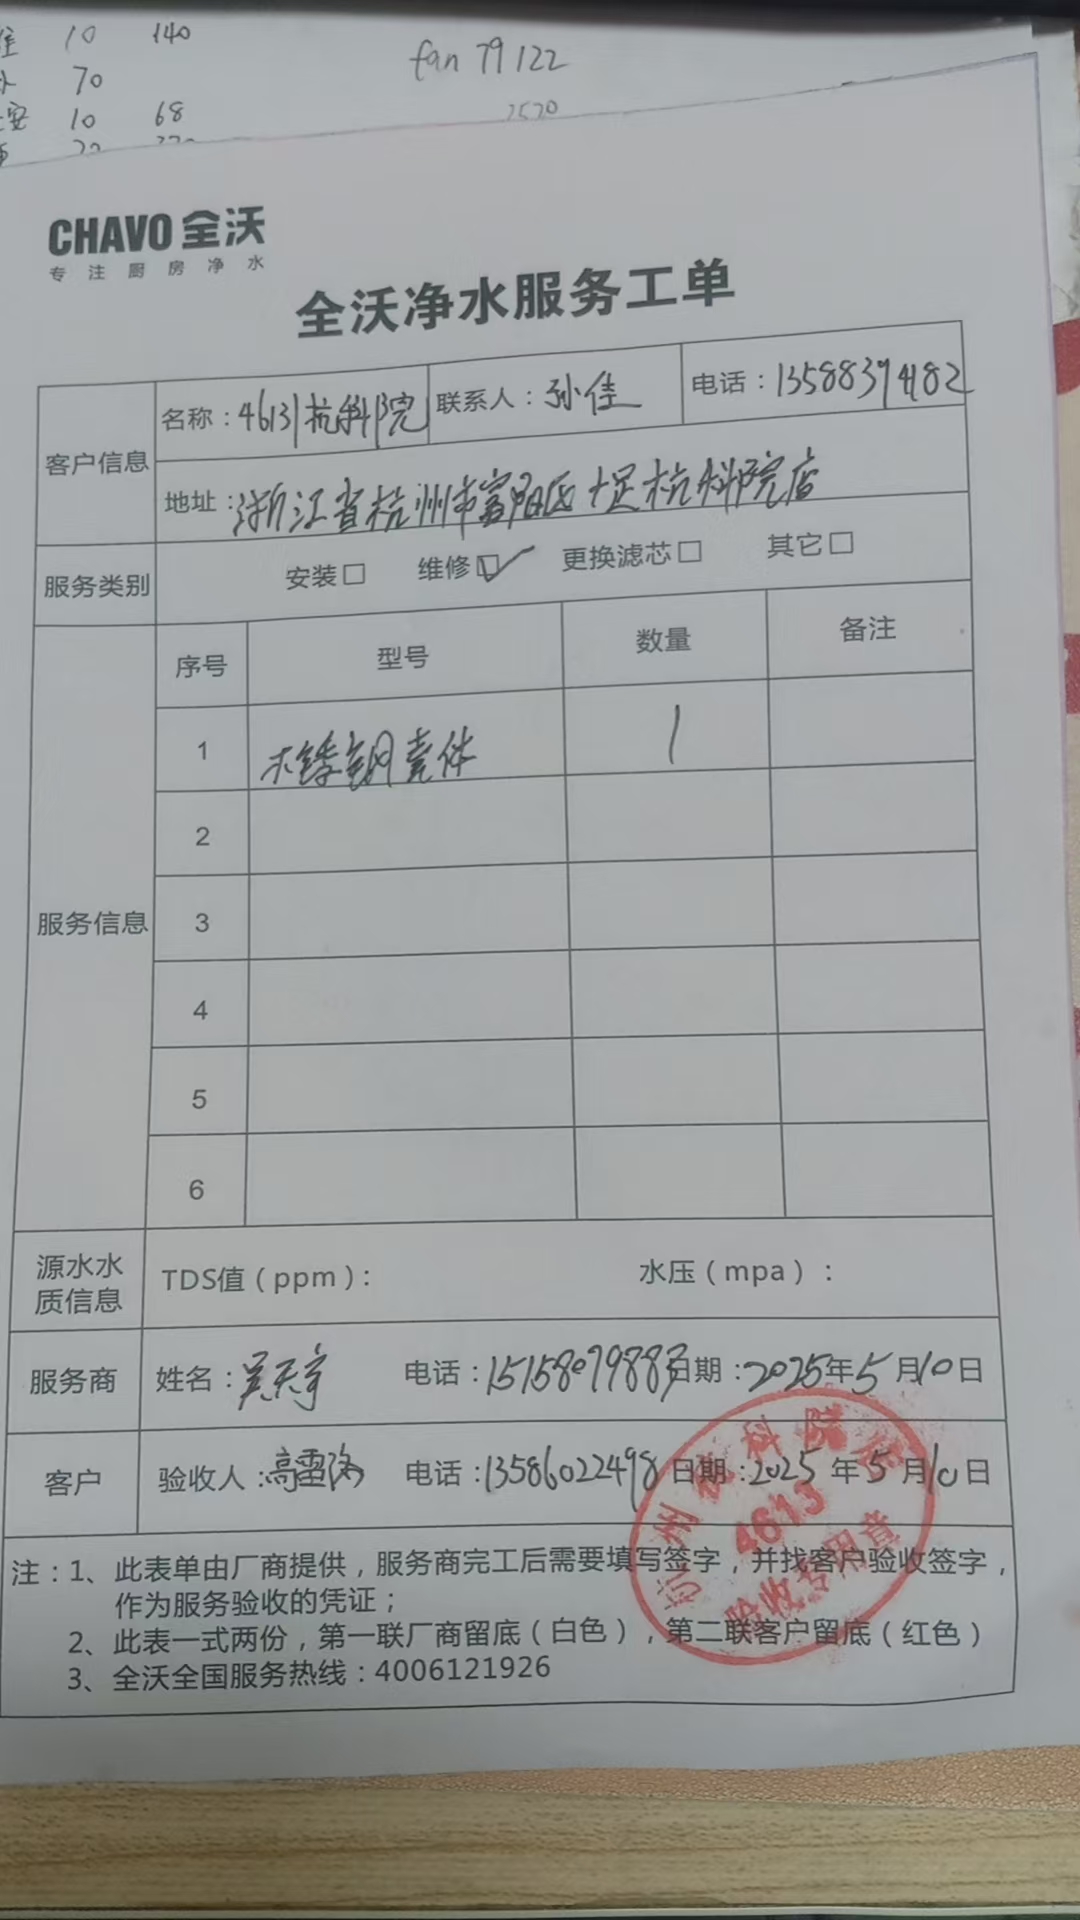 10 140
70
安 10 68
fan 79122
2520
CHAVO 全沃
专注厨房净水
全沃净水服务工单
客户信息 名称：4613杭科院 联系人：孙佳 电话：13588394182
地址：浙江省杭州市富阳区十足杭科院店
服务类别 安装□ 维修☑ 更换滤芯□ 其它□
服务信息 序号 型号 数量 备注
1 不锈钢壳体 1
2
3
4
5
6
源水水质信息 TDS值（ppm）： 水压（mpa）：
服务商 姓名：吴天宇 电话：15158079883 日期：2025年5月10日
客户 验收人：高雷 电话：13586022498 日期：2025年5月10日
注：1、此表单由厂商提供，服务商完工后需要填写签字，并找客户验收签字，
作为服务验收的凭证；
2、此表一式两份，第一联厂商留底（白色），第二联客户留底（红色）
3、全沃全国服务热线：4006121926
杭州杭科院店
4613
验收专用章